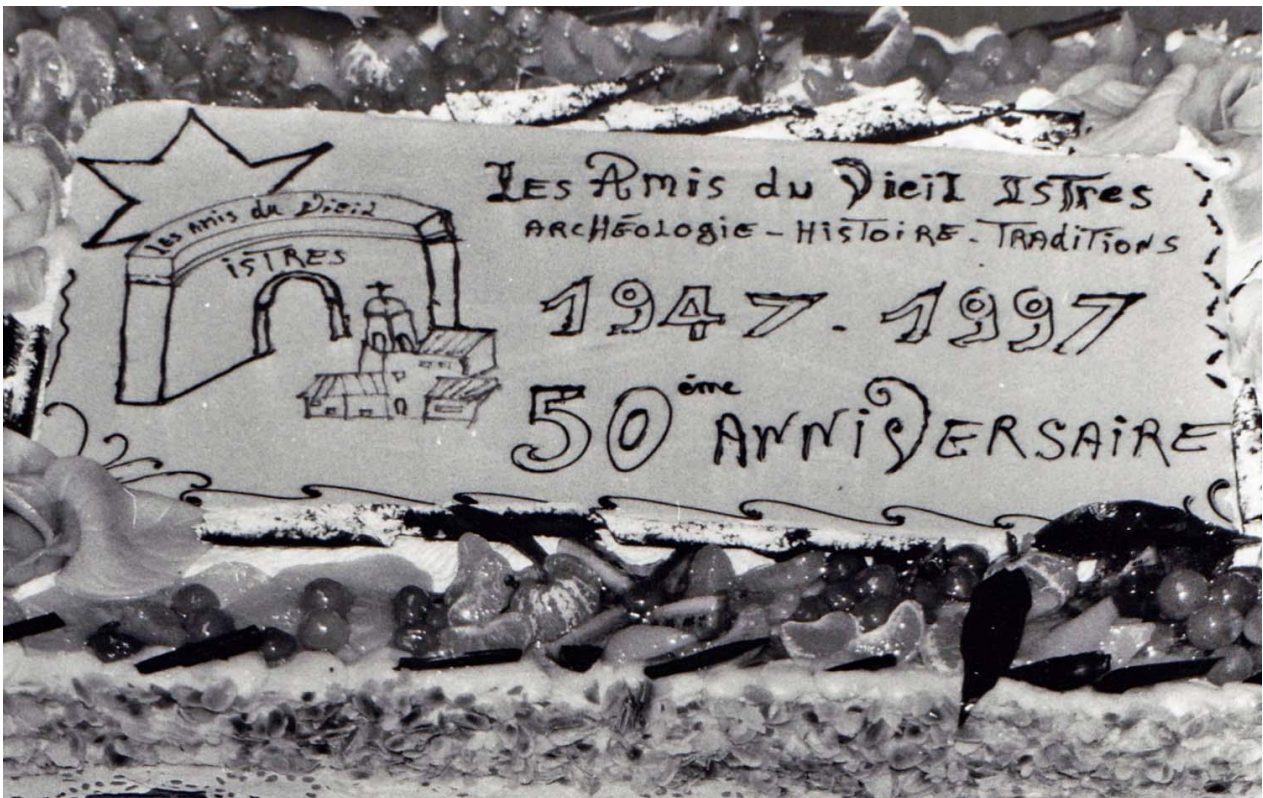 Les Amis du Vieil
ISTRES
Les Amis du Vieil Istres
ARCHÉOLOGIE - HISTOIRE - TRADITIONS
1947 - 1997
50ème ANNIVERSAIRE